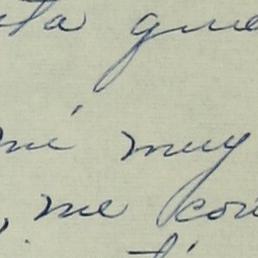 ta que
mi muy
, me con